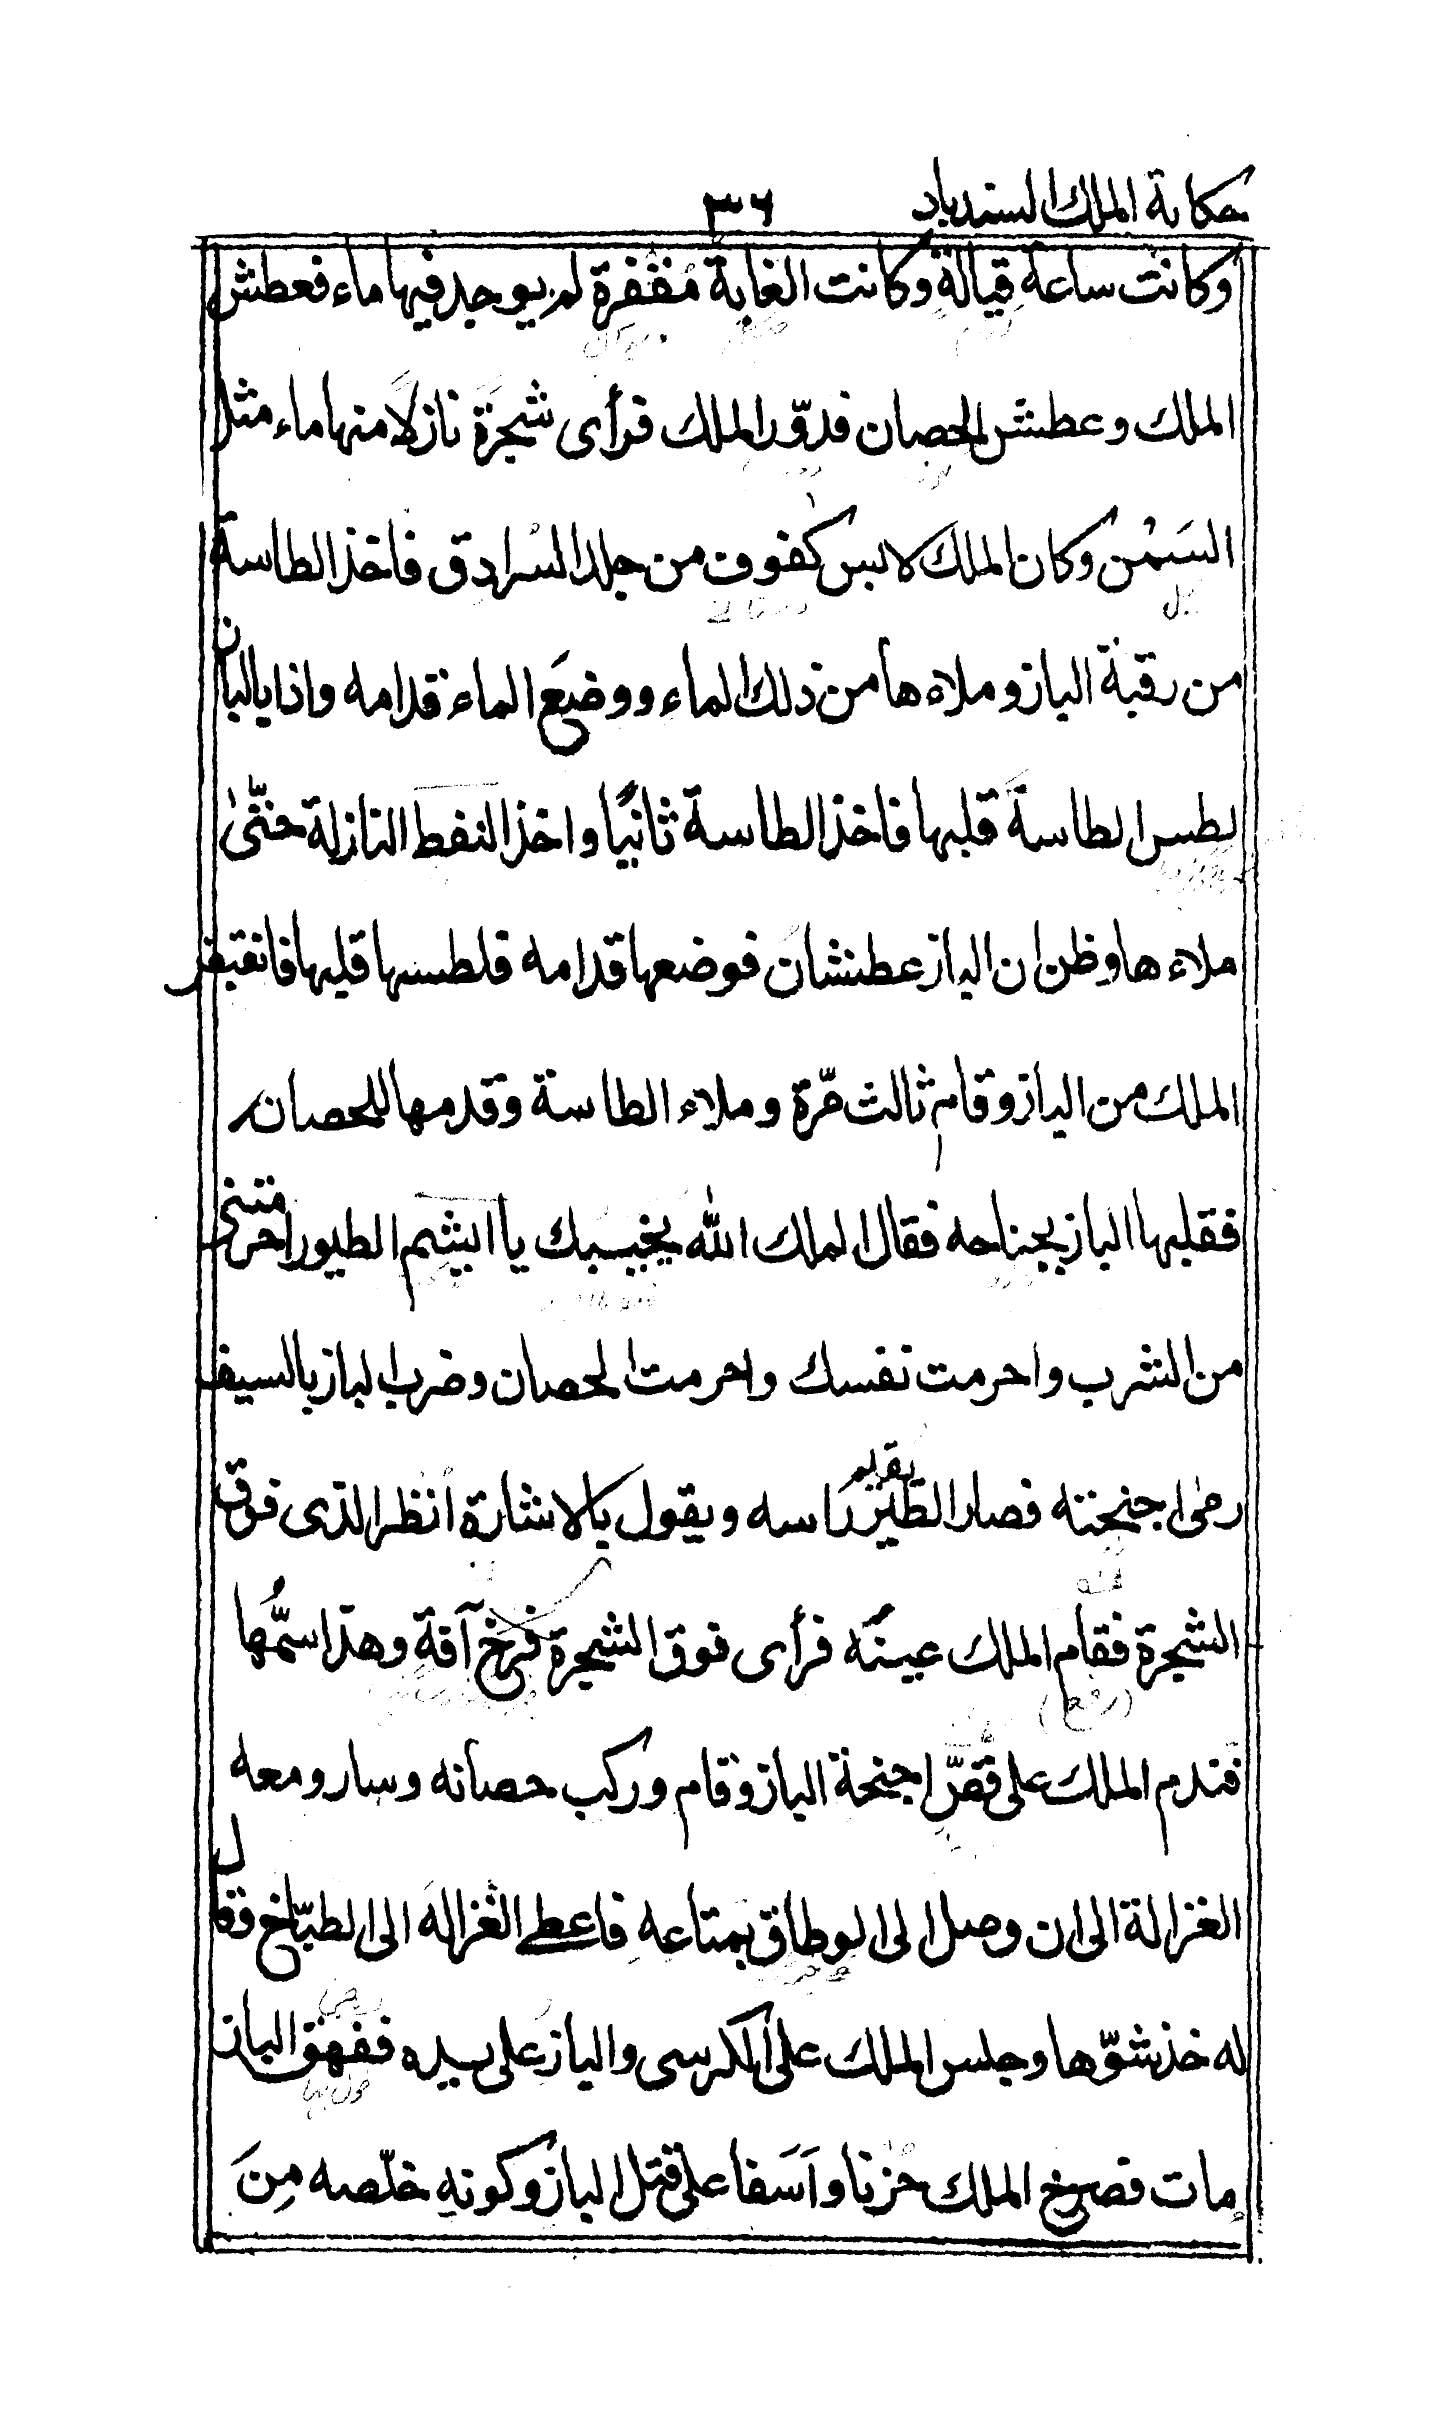 حكاية الملك السندباد ٣٦
وكانت ساعة قيالة وكانت الغابة مُقفرة لم يوجد فيها ماء فعطش
الملك وعطش الحصان فدوّر الملك فرأى شجرة نازلًا منها ماء مثل
السَمْن وكان الملك لابس كفوف من جلد السرادق فاخذ الطاسة
من رقبة الباز وملاءها من ذلك الماء ووضع الماء قدامه واذا بالباز
لطس الطاسة قلبها فاخذ الطاسة ثانيًا واخذ النقط النازلة حتّى
ملاءها وظن ان الباز عطشان فوضعها قدامه فلطسها قلبها فانقبض
الملك من الباز وقام ثالث مرّة وملاء الطاسة وقدمها للحصان
فقلبها الباز بجناحه فقال الملك الله يخيبك يا ابشم الطيور احرمتنى
من الشرب واحرمت نفسك واحرمت الحصان وضرب الباز بالسيف
رمى اجنحته فصار الطَيْر يقيم راسه ويقول بالاشارة اُنظر الذى فوق
الشجرة فقام الملك عينَه فرأى فوق الشجرة فرخ آفة وهذا سمّها
فندم الملك على قصّ اجنحة الباز وقام وركب حصانه وسار ومعه
الغزالة الى ان وصل الى الوطاق بمتاعه فاعطى الغزاله الى الطبّاخ وقال
له خذ شوّها وجلس الملك على الكرسى والباز على يده ففهق الباز
مات فصرخ الملك حزنا واَسَفا على قتل الباز وكونه خلّصه مِنَ